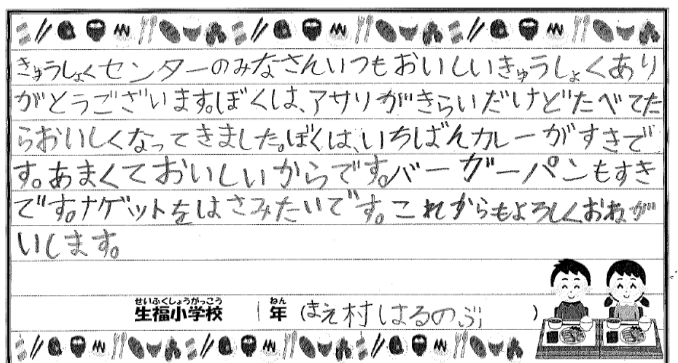 きゅうしょくセンターのみなさんいつもおいしいきゅうしょくあり
がとうございます。ぼくは、アサリがきらいだけどたべてた
らおいしくなってきました。ぼくは、いちばんカレーがすきで
す。あまくておいしいからです。バーガーパンもすき
です。ナゲットをはさみたいです。これからもよろしくおねが
いします。
せいふくしょうがっこう ねん
生福小学校 1年 (まえ村はるのぶ)